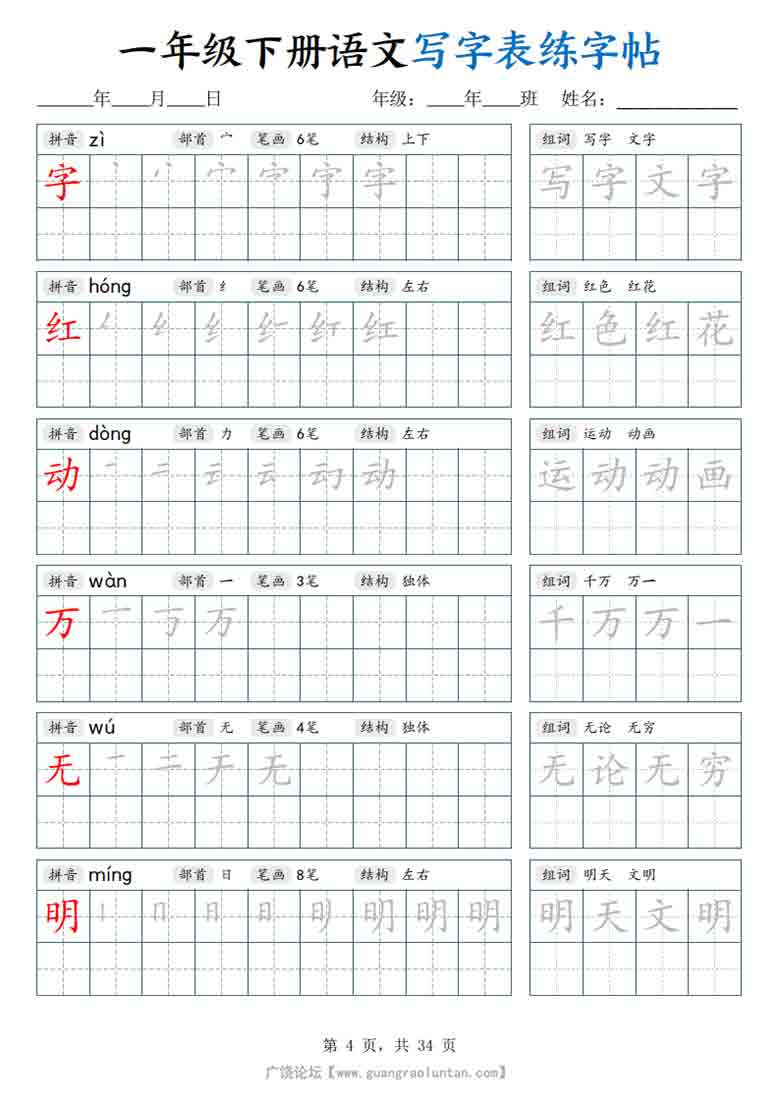 一年级下册语文写字表练字帖
______年____月____日 年级：____年____班 姓名：____________
拼音 zì 部首 宀 笔画 6笔 结构 上下 组词 写字 文字
字 丶 丷 宀 宁 字 字 写字文字
拼音 hóng 部首 纟 笔画 6笔 结构 左右 组词 红色 红花
红 红 红色红花
拼音 dòng 部首 力 笔画 6笔 结构 左右 组词 运动 动画
动 一 二 云 动 运动动画
拼音 wàn 部首 一 笔画 3笔 结构 独体 组词 千万 万一
万 一 丂 万 千万万一
拼音 wú 部首 无 笔画 4笔 结构 独体 组词 无论 无穷
无 一 二 无 无论无穷
拼音 míng 部首 日 笔画 8笔 结构 左右 组词 明天 文明
明 丨 冂 日 日 明 明天文明
第 4 页，共 34 页
广饶论坛【www.guangraoluntan.com】